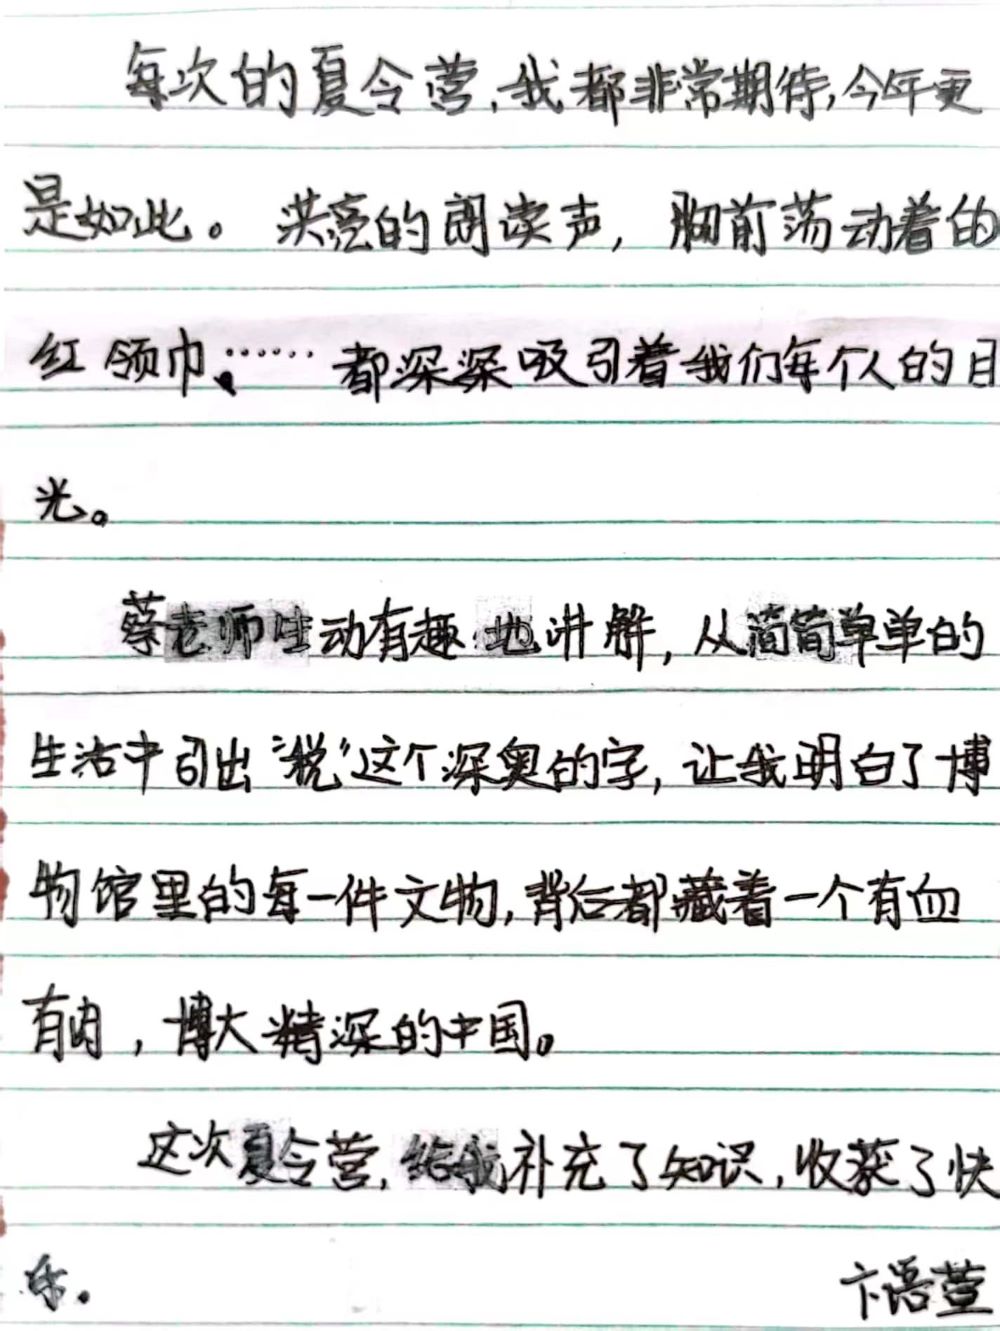 每次的夏令营,我都非常期待,今年更
是如此。洪亮的朗读声,胸前荡动着的
红领巾、……都深深吸引着我们每个人的目
光。
蔡老师生动有趣地讲解,从简简单单的
生活中引出“税”这个深奥的字,让我明白了博
物馆里的每一件文物,背后都藏着一个有血
有肉,博大精深的中国。
这次夏令营,给我补充了知识,收获了快
乐.
卞语萱